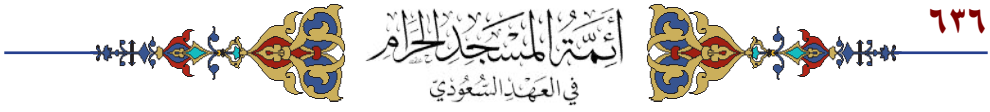 ٦٣٦
أَئِمَّةُ المَسْجِدِ الحَرَامِ
في العَهْدِ السُّعُودِيّ